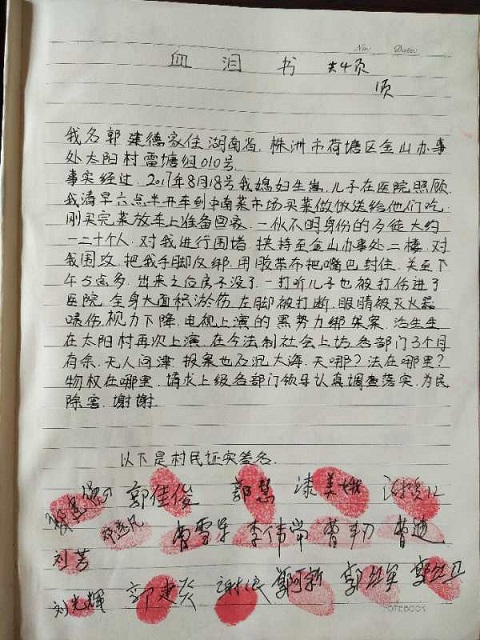 No.
Date
血 泪 书 共4页
页
我名郭建德家住湖南省,株洲市荷塘区金山办事
处太阳村雷塘组010号.
事实经过.2017年8月18号我媳妇生崽,儿子在医院照顾.
我清早六点半开车到中南菜市场买菜做饭送给他们吃.
刚买完菜放车上准备回家.一伙不明身份的歹徒大约
一二十个人.对我进行围堵.挟持至金山办事处二楼.对
我围攻.把我手脚反绑.用胶带布把嘴巴封住.关至下
午5点多.出来之后房子没了.一打听儿子也被打伤进了
医院.全身大面积淤伤.左脚被打断.眼睛被灭火器
喷伤视力下降.电视上演的黑势力绑架案.活生生
在太阳村再次上演.在今法制社会上访.各部门3个月
有余.无人问津.报案也石沉大海.天哪?法在哪里?
物权在哪里.请求上级各部门领导认真调查落实.为民
除害.谢谢.
以下是村民证实签名.
郭佳俊 郭慧 漆美娥
曹雪乐 李伟常 曹
刘芳
刘光辉 郭建
NOTEBOOK